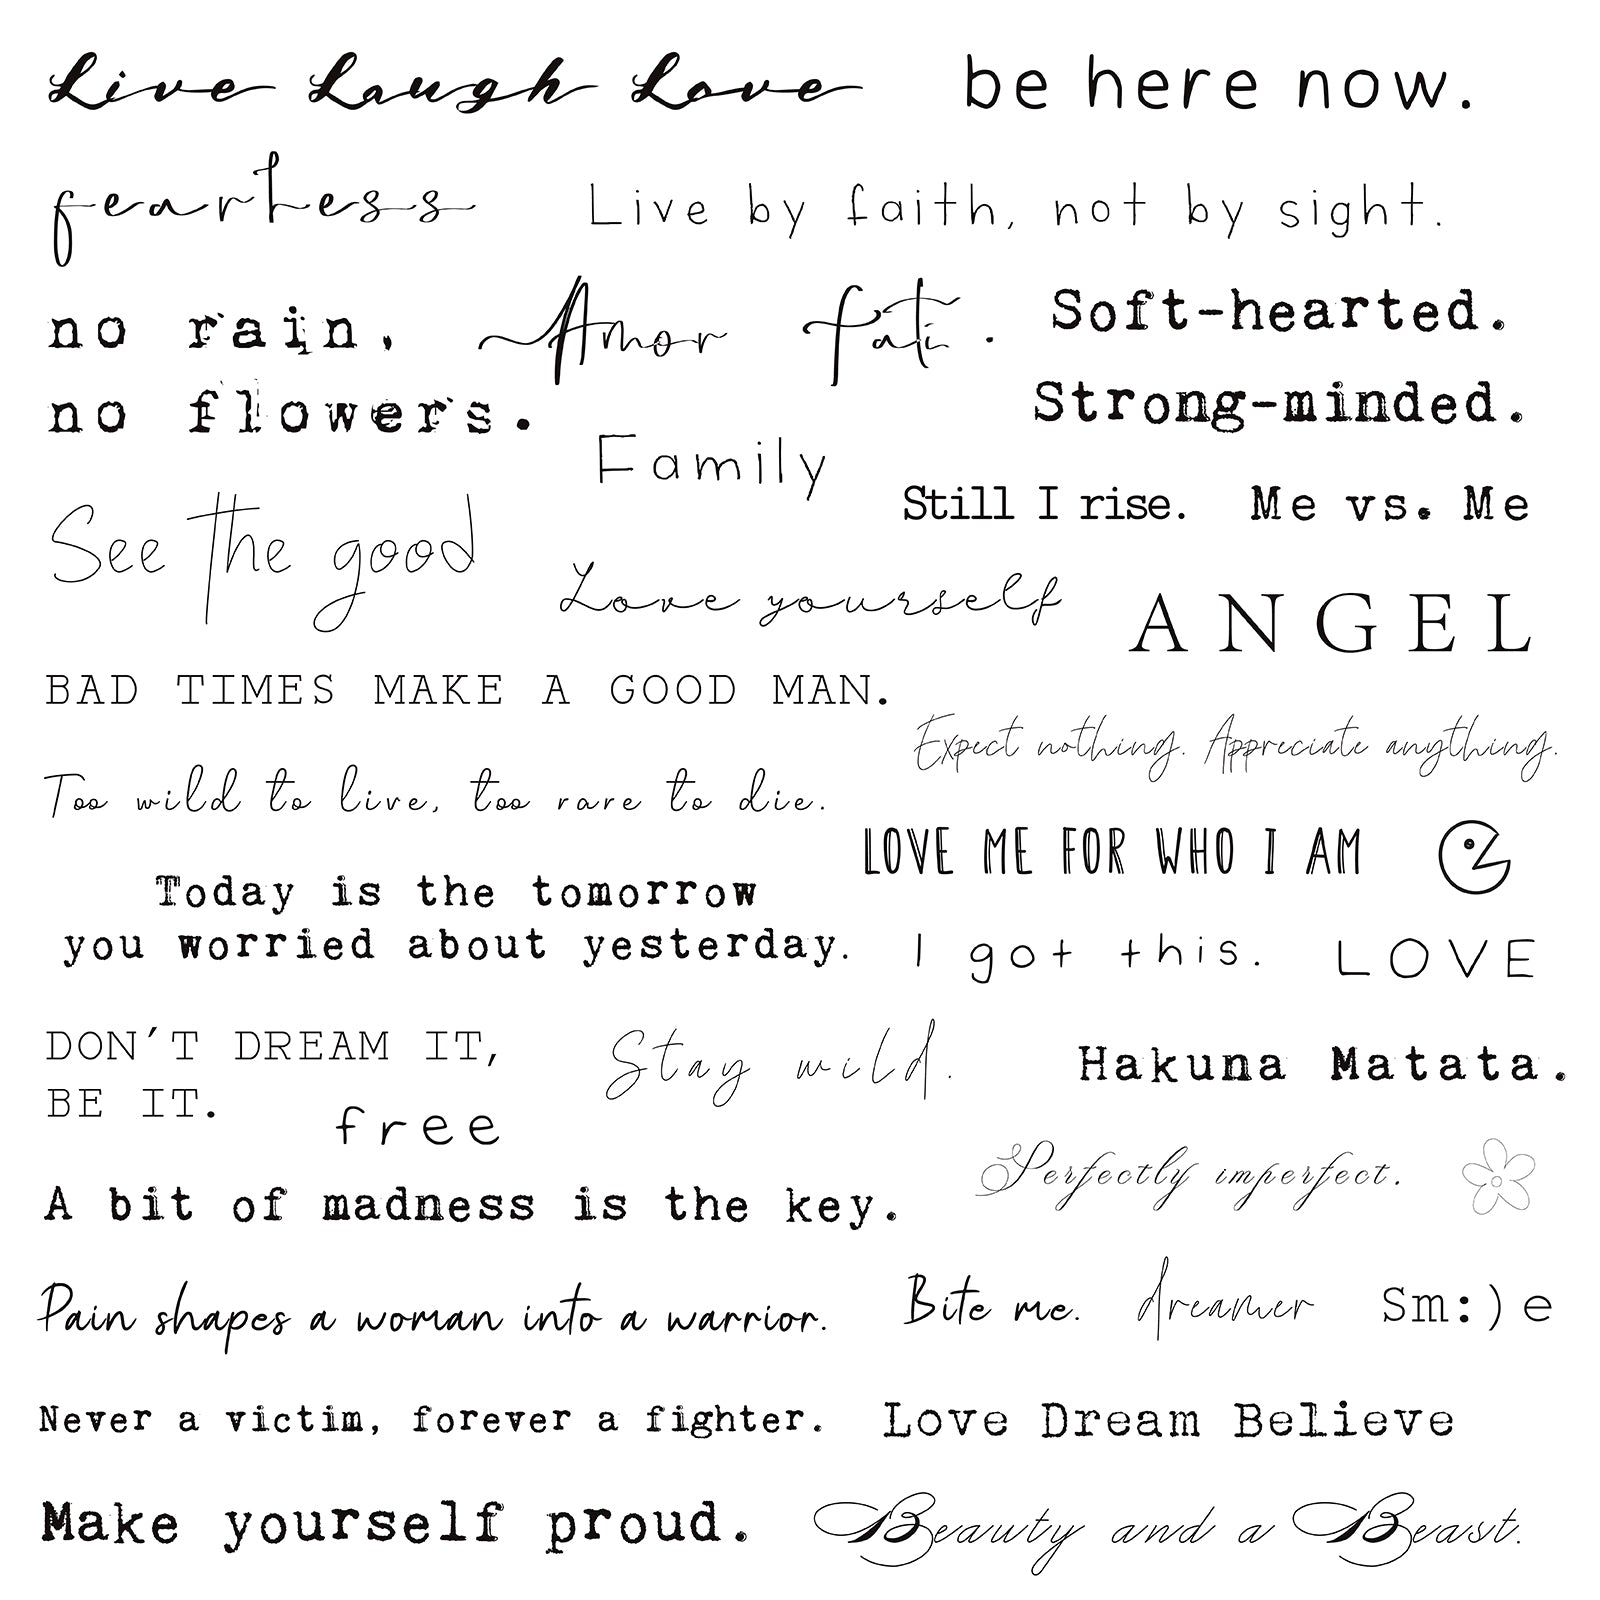 Live Laugh Love
be here now.
fearless
Live by faith, not by sight.
no rain.
no flowers.
Amor fati.
Soft-hearted.
Strong-minded.
Family
Still I rise.
Me vs. Me
See the good
Love yourself
ANGEL
BAD TIMES MAKE A GOOD MAN.
Expect nothing. Appreciate anything.
Too wild to live, too rare to die.
LOVE ME FOR WHO I AM
Today is the tomorrow
you worried about yesterday.
I got this.
LOVE
DON'T DREAM IT,
BE IT.
free
Stay wild.
Hakuna Matata.
Perfectly imperfect.
A bit of madness is the key.
Pain shapes a woman into a warrior.
Bite me.
dreamer
Sm:)e
Never a victim, forever a fighter.
Love Dream Believe
Make yourself proud.
Beauty and a Beast.